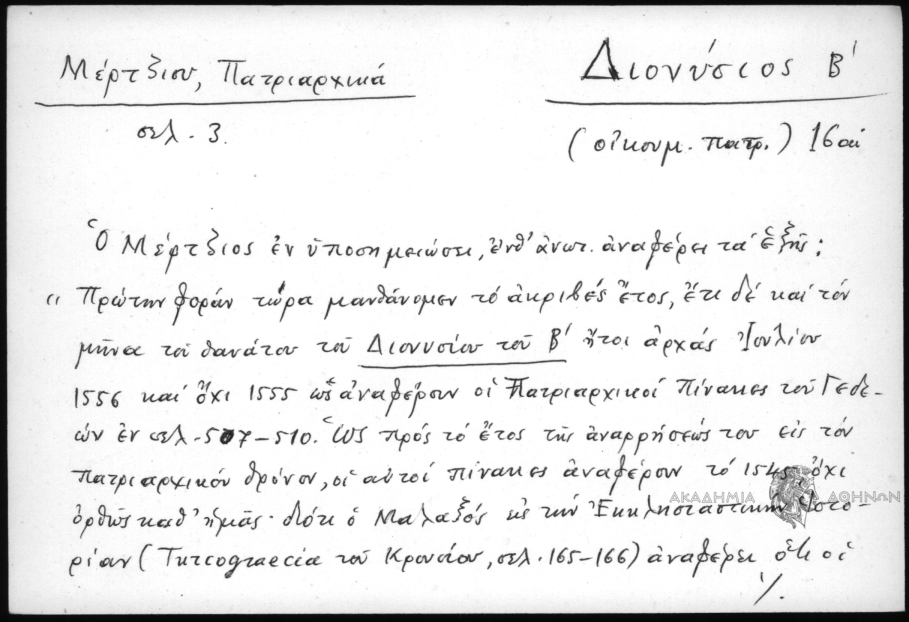 Μέρτζιου, Πατριαρχικά
σελ. 3.
Διονύσιος Β΄
(οἰκουμ. πατρ.) 16 αἰ
Ὁ Μέρτζιος ἐν ὑποσημειώσει, ἔνθ' ἀνωτ. ἀναφέρει τά ἑξῆς:
"Πρώτην φοράν τώρα μανθάνομεν τό ἀκριβές ἔτος, ἔτι δέ καί τόν
μῆνα τοῦ θανάτου τοῦ Διονυσίου τοῦ Β΄ ἤτοι ἀρχάς Ἰουλίου
1556 καί ὄχι 1555 ὡς ἀναφέρουν οἱ Πατριαρχικοί Πίνακες τοῦ Γεδε-
ών ἐν σελ. 507-510. Ὡς πρός τό ἔτος τῆς ἀναρρήσεώς του εἰς τόν
πατριαρχικόν θρόνον, οἱ αὐτοί πίνακες ἀναφέρουν τό 1545, ὄχι
ὀρθῶς καθ' ἡμᾶς· διότι ὁ Μαλαξός εἰς τήν Ἐκκλησιαστικήν Ἱστο-
ρίαν (Turcograecia τοῦ Κρουσίου, σελ. 165-166) ἀναφέρει ὅτι οἱ
./.
ΑΚΑΔΗΜΙΑ ΑΘΗΝΩΝ